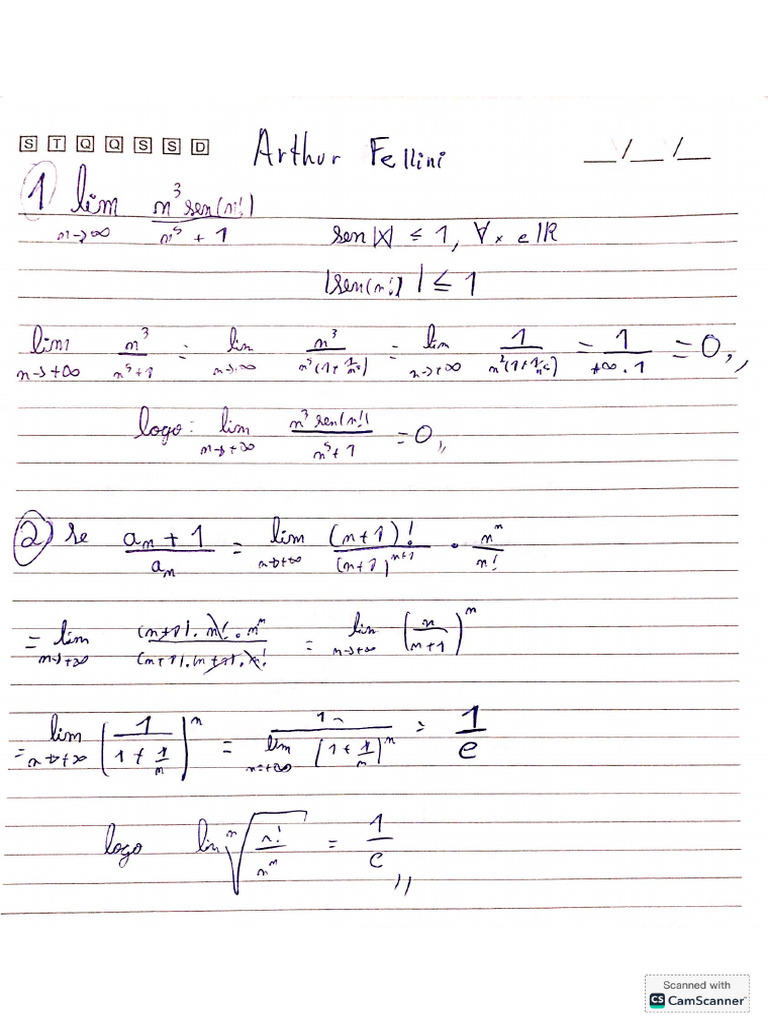 S T Q Q S S D Arthur Fellini __/__/__
1) lim n→∞ n³ sen(n!) / n⁵ + 1 sen|x| ≤ 1, ∀x ∈ ℝ
|sen(n!)| ≤ 1
lim n→+∞ n³ / n⁵+1 = lim n→∞ n³ / n⁵(1+1/n⁵) = lim n→+∞ 1 / n²(1+1/n⁵) = 1 / +∞.1 = 0,,
logo: lim n→+∞ n³ sen(n!) / n⁵+1 = 0,,
2) se aₙ + 1 / aₙ = lim n→+∞ (n+1)! / (n+1)ⁿ⁺¹ . nⁿ / n!
= lim n→+∞ (n+1). n! . nⁿ / (n+1).(n+1)ⁿ. n! = lim n→+∞ (n / n+1)ⁿ
= lim n→+∞ (1 / 1 + 1/n)ⁿ = 1 / lim n→+∞ (1 + 1/n)ⁿ = 1 / e
logo lim ⁿ√(n! / nⁿ) = 1 / e,,
Scanned with
CS CamScanner